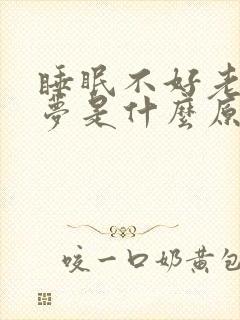 睡眠不好老
夢是什麼原
咬一口奶黄包